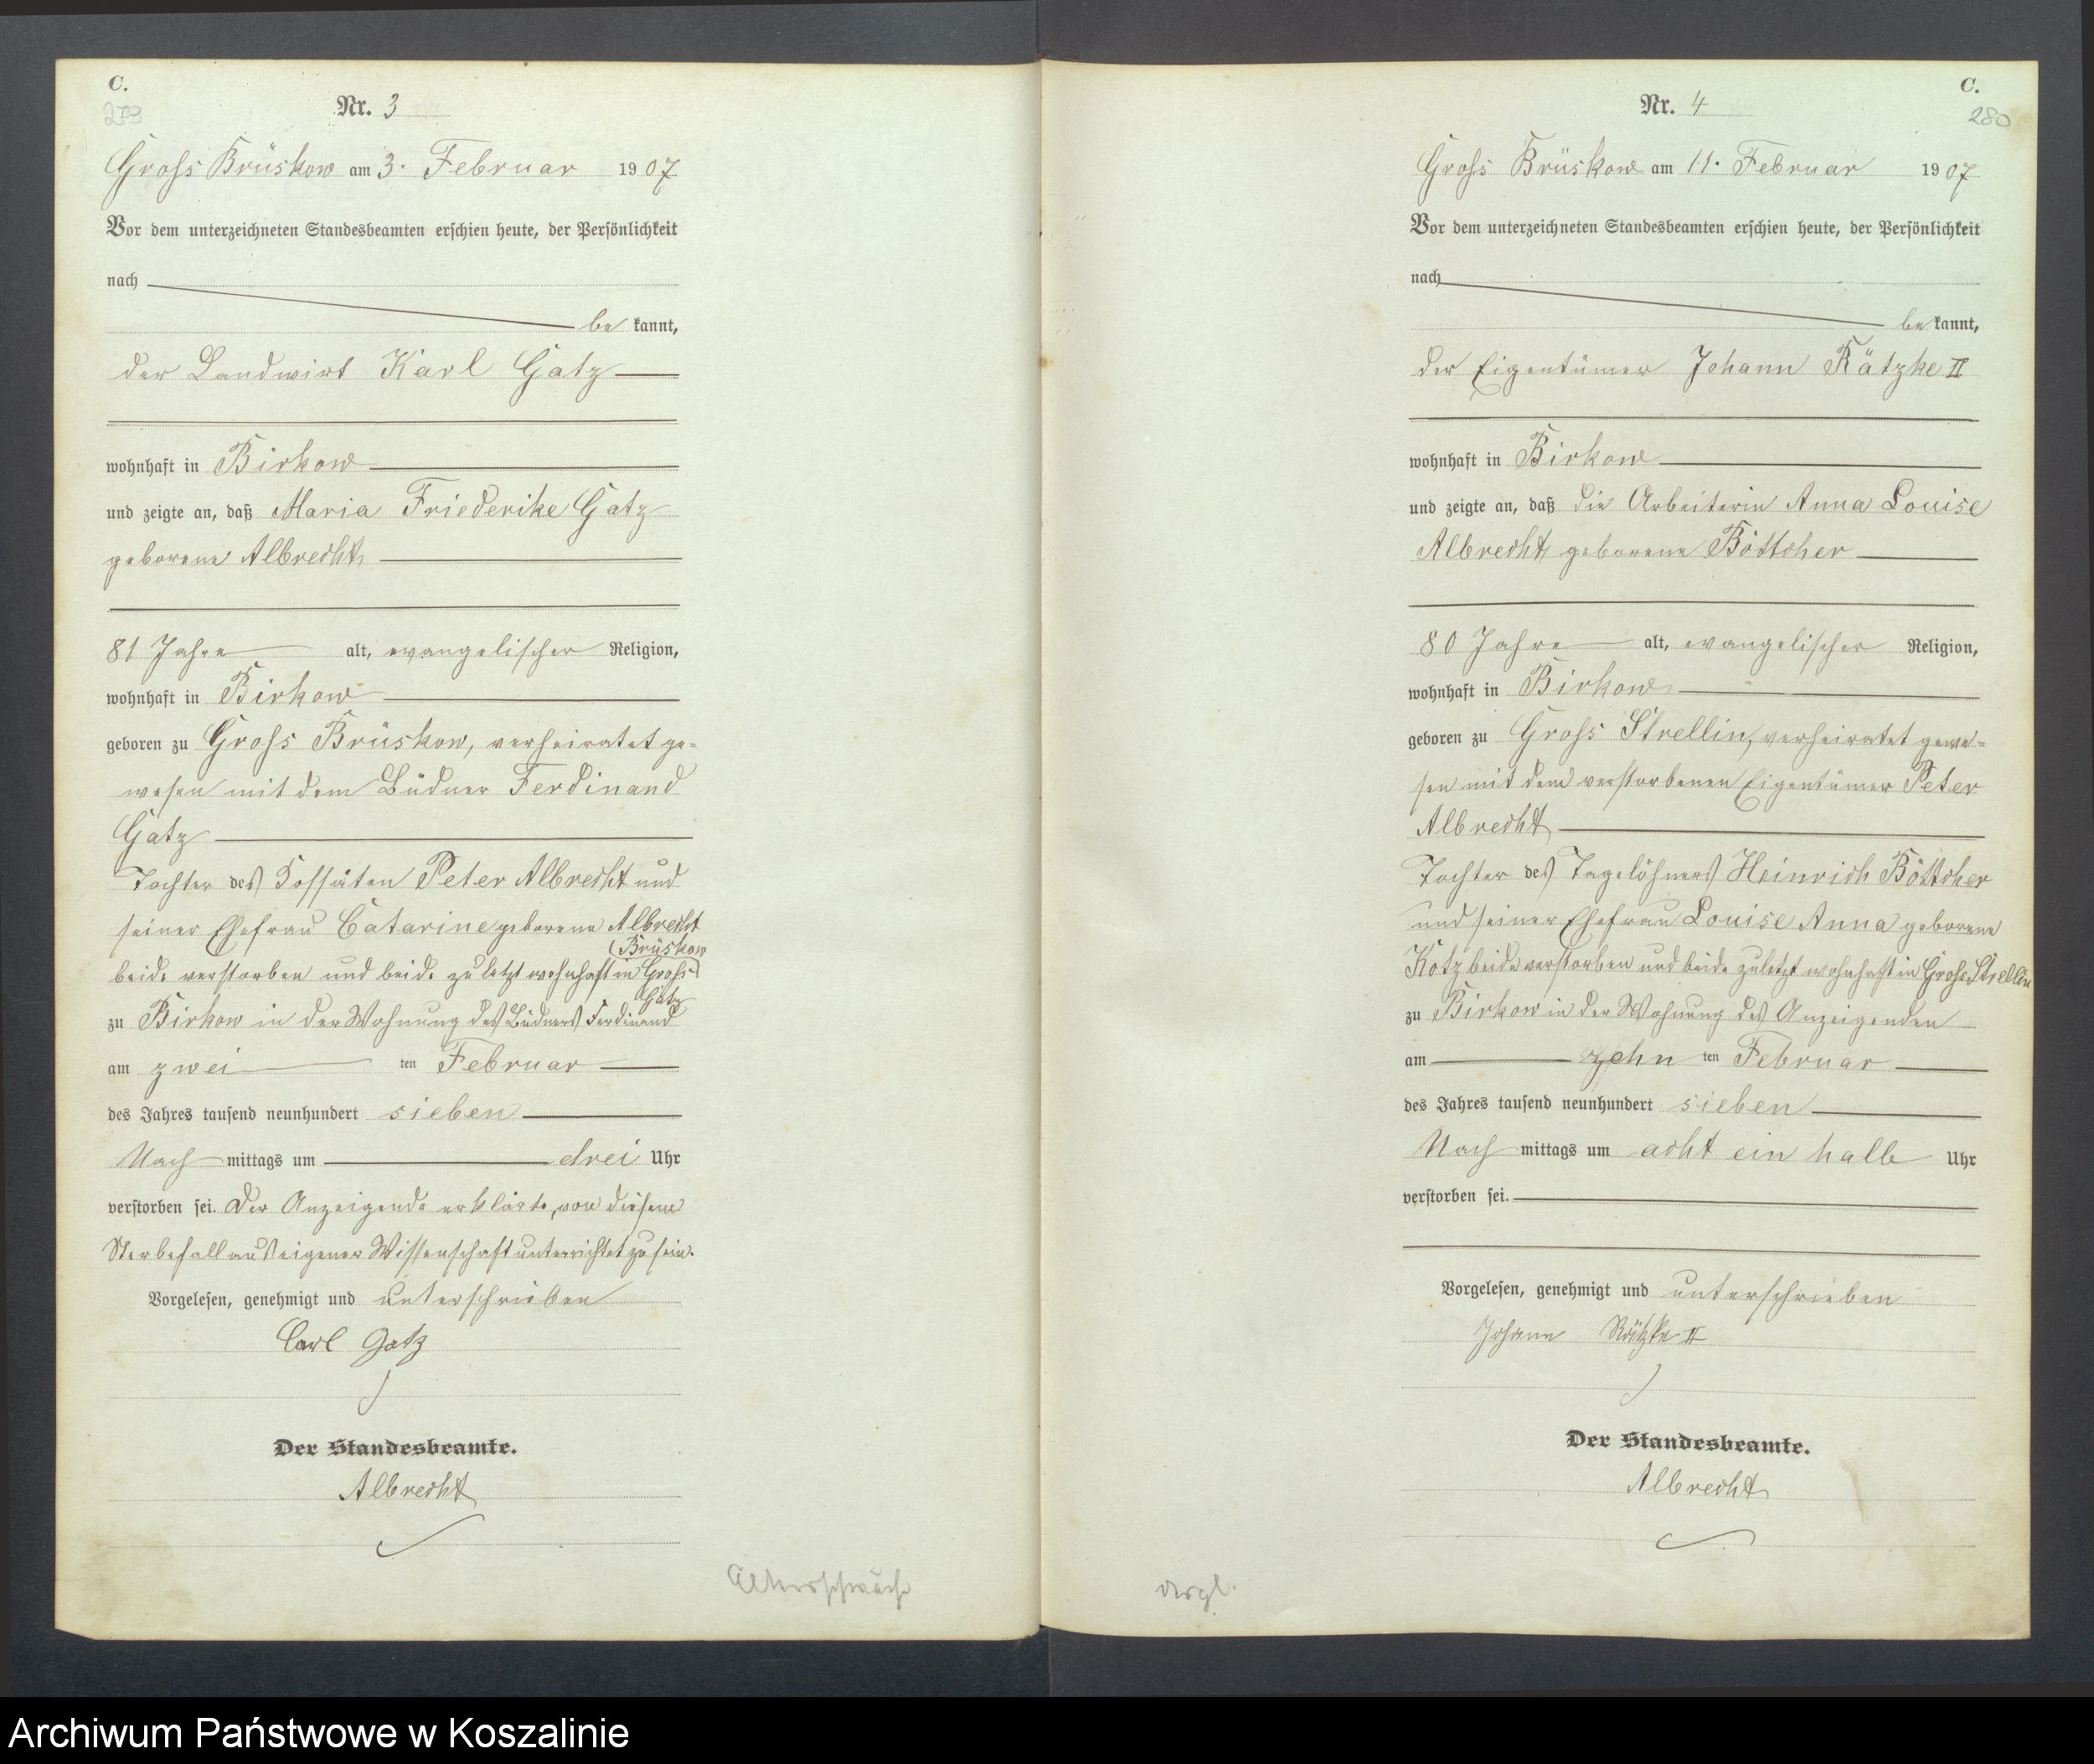 C.
279
Nr. 3
Groß Brüskow am 3. Februar 1907
Vor dem unterzeichneten Standesbeamten erschien heute, der Persönlichkeit
nach
be kannt,
der Landwirt Karl Gatz
wohnhaft in Birkow
und zeigte an, daß Maria Friederike Gatz
geborene Albrecht
81 Jahre alt, evangelischer Religion,
wohnhaft in Birkow
geboren zu Groß Brüskow, verheiratet ge-
wesen mit dem Büdner Ferdinand
Gatz
Tochter des Kossäten Peter Albrecht und
seiner Ehefrau Catarine geborene Albrecht
(Brüskow
beide verstorben und beide zuletzt wohnhaft in Groß-)
Gatz
zu Birkow in der Wohnung des Büdners Ferdinand
am zwei ten Februar
des Jahres tausend neunhundert sieben
Nach mittags um drei Uhr
verstorben sei. Der Anzeigende erklärte, von diesem
Sterbefall aus eigener Wissenschaft unterrichtet zu sein.
Vorgelesen, genehmigt und unterschrieben
Carl Gatz
Der Standesbeamte.
Albrecht
Altersschwäche
C.
280
Nr. 4
Groß Brüskow am 11. Februar 1907
Vor dem unterzeichneten Standesbeamten erschien heute, der Persönlichkeit
nach
be kannt,
der Eigentümer Johann Rätzke II
wohnhaft in Birkow
und zeigte an, daß die Arbeiterin Anna Louise
Albrecht geborene Böttcher
80 Jahre alt, evangelischer Religion,
wohnhaft in Birkow
geboren zu Groß Strellin, verheiratet gewe-
sen mit dem verstorbenen Eigentümer Peter
Albrecht
Tochter des Tagelöhners Heinrich Böttcher
und seiner Ehefrau Louise Anna geborene
Kotz beide verstorben und beide zuletzt wohnhaft in Groß Strellin
zu Birkow in der Wohnung des Anzeigenden
am zehn ten Februar
des Jahres tausend neunhundert sieben
Nach mittags um acht ein halb Uhr
verstorben sei.
Vorgelesen, genehmigt und unterschrieben
Johann Rätzke II
Der Standesbeamte.
Albrecht
dergl.
Archiwum Państwowe w Koszalinie